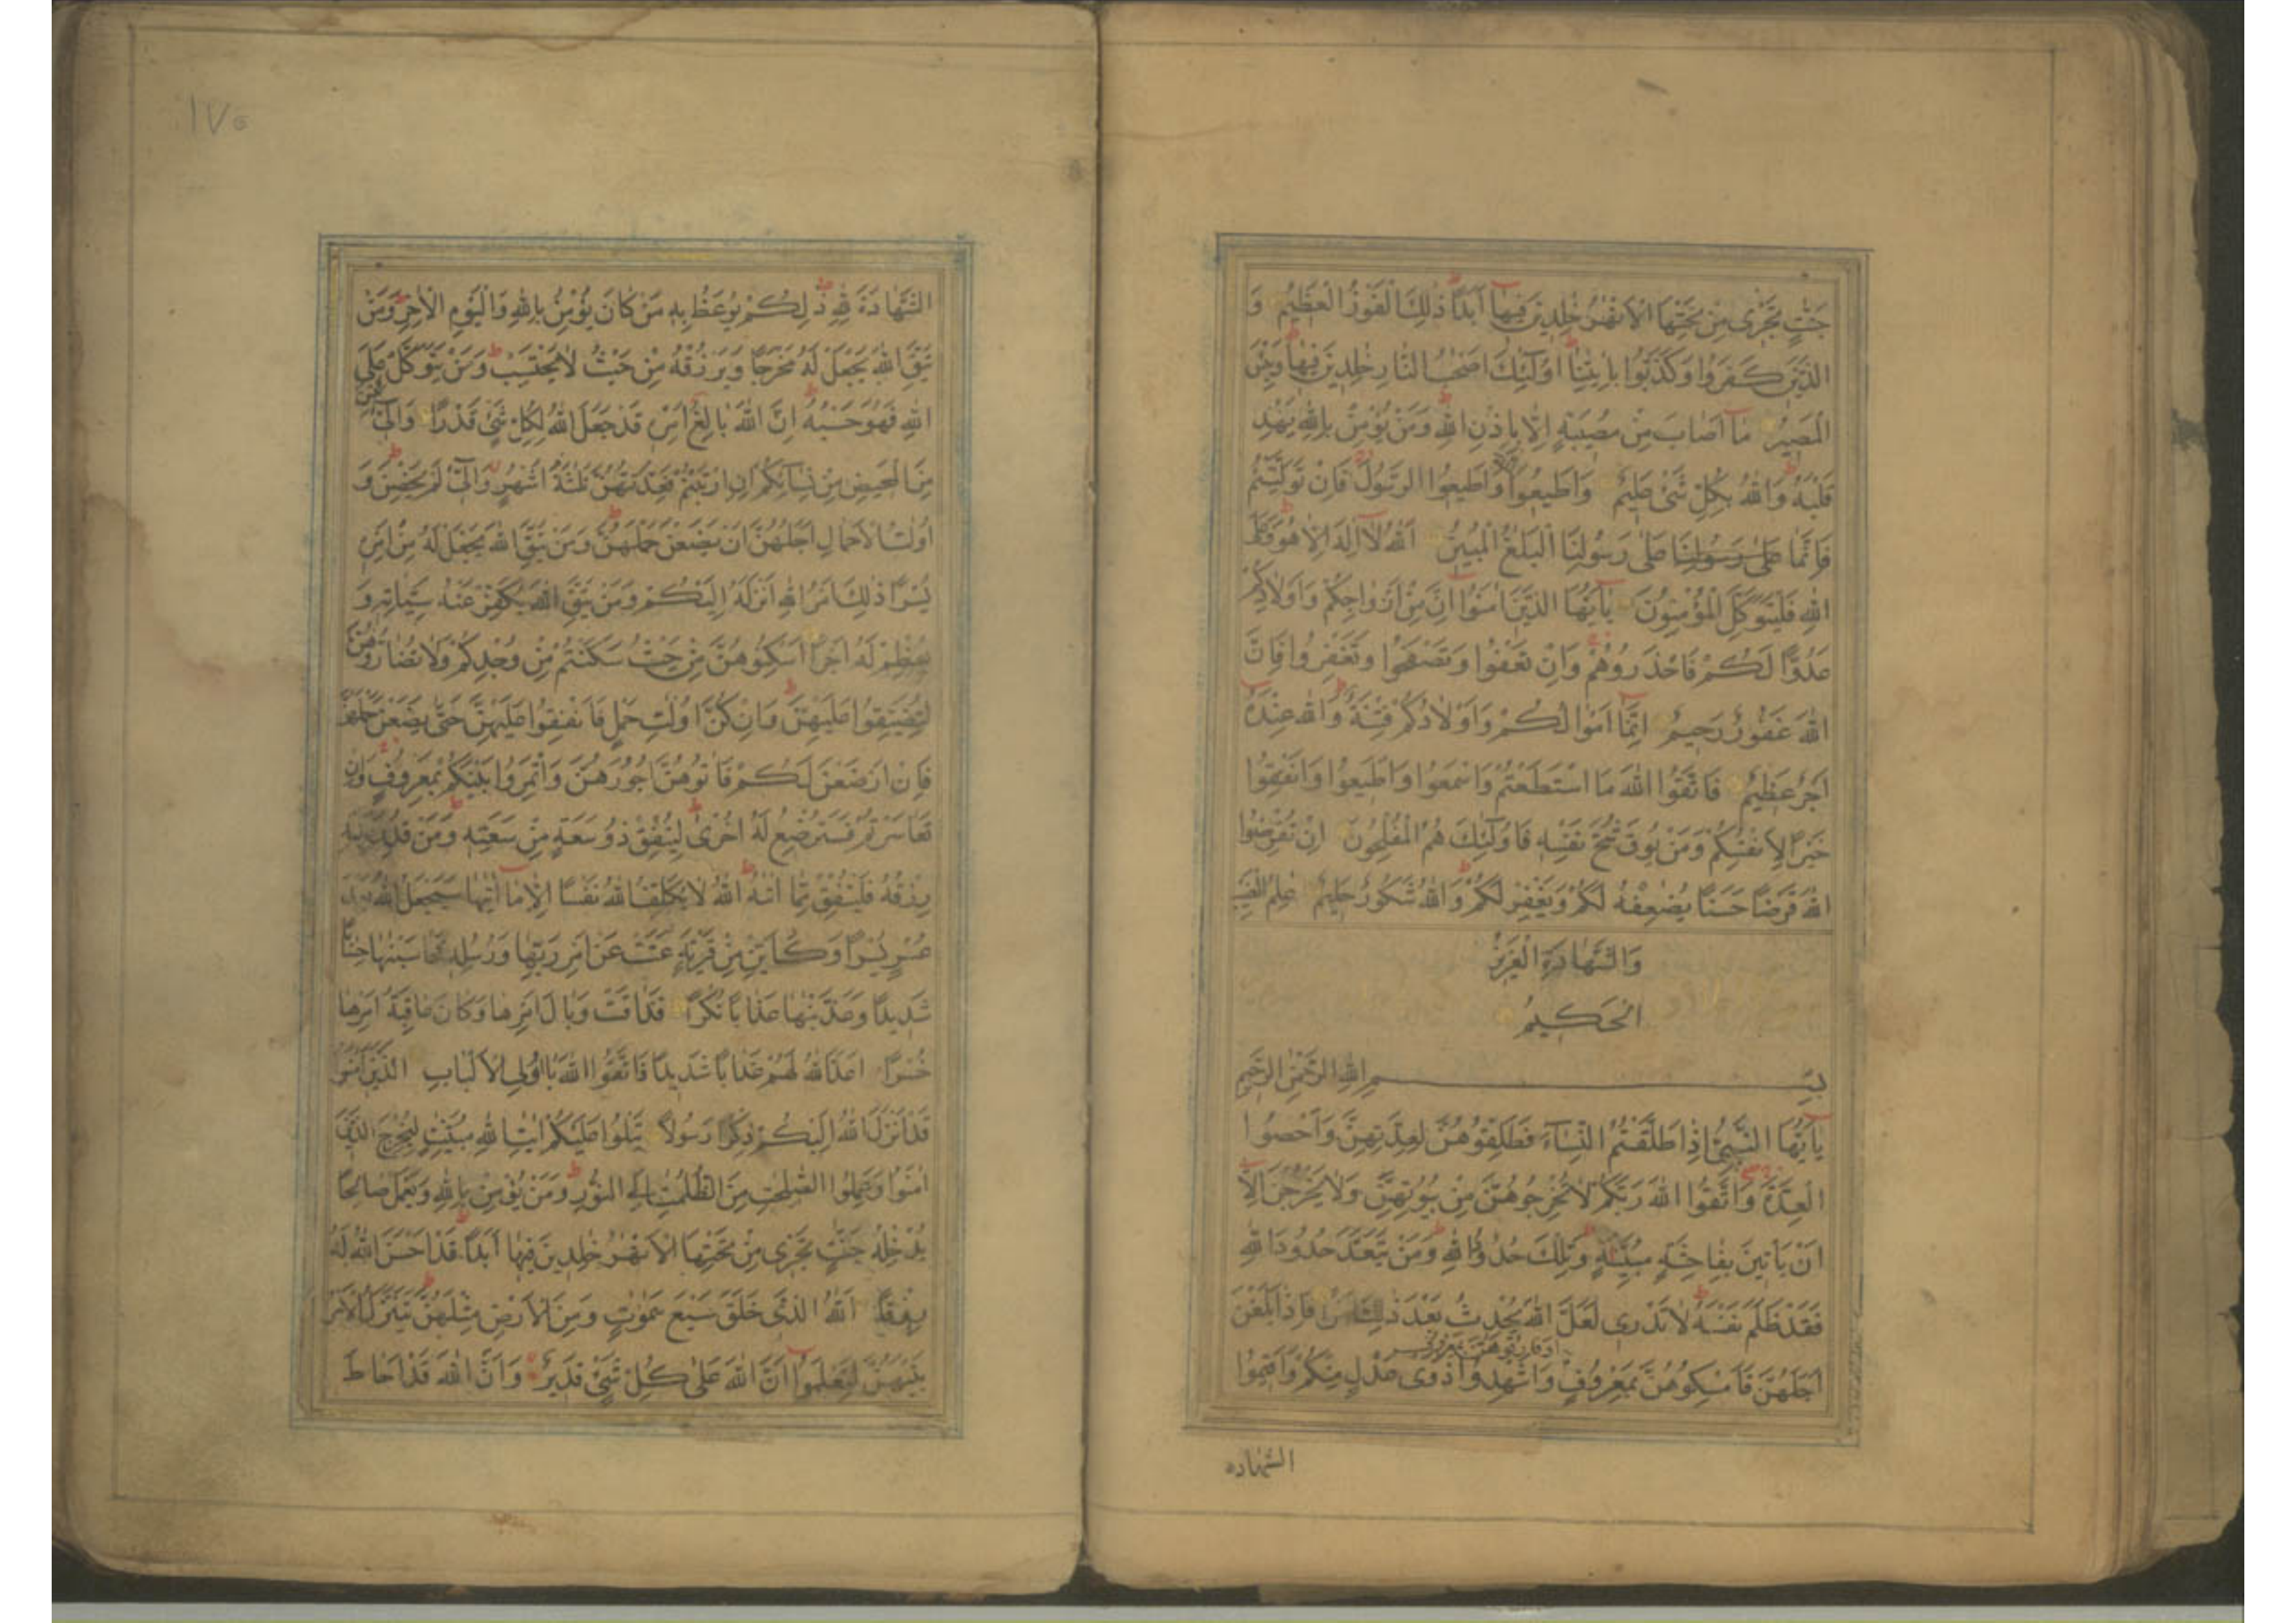 جَنّٰتٍ تَجْرٖى مِنْ تَحْتِهَا الْاَنْهٰرُ خٰلِدٖينَ فٖيهَٓا اَبَدًا ذٰلِكَ الْفَوْزُ الْعَظٖيمُ وَ
الَّذٖينَ كَفَرُوا وَكَذَّبُوا بِاٰيٰتِنَٓا اُولٰٓئِكَ اَصْحٰبُ النَّارِ خٰلِدٖينَ فٖيهَا وَبِئْسَ
الْمَصٖيرُ مَٓا اَصَابَ مِنْ مُصٖيبَةٍ اِلَّا بِاِذْنِ اللّٰهِ وَمَنْ يُؤْمِنْ بِاللّٰهِ يَهْدِ
قَلْبَهُ وَاللّٰهُ بِكُلِّ شَیْءٍ عَلٖيمٌ وَاَطٖيعُوا اللّٰهَ وَاَطٖيعُوا الرَّسُولَ فَاِنْ تَوَلَّيْتُمْ
فَاِنَّمَا عَلٰى رَسُولِنَا عَلٰى رَسُولِنَا الْبَلٰغُ الْمُبٖينُ اَللّٰهُ لَٓا اِلٰهَ اِلَّا هُوَ وَعَلَى
اللّٰهِ فَلْيَتَوَكَّلِ الْمُؤْمِنُونَ يَٓا اَيُّهَا الَّذٖينَ اٰمَنُٓوا اِنَّ مِنْ اَزْوَاجِكُمْ وَاَوْلَادِكُمْ
عَدُوًّا لَكُمْ فَاحْذَرُوهُمْ وَاِنْ تَعْفُوا وَتَصْفَحُوا وَتَغْفِرُوا فَاِنَّ
اللّٰهَ غَفُورٌ رَحٖيمٌ اِنَّمَٓا اَمْوَالُكُمْ وَاَوْلَادُكُمْ فِتْنَةٌ وَاللّٰهُ عِنْدَهُ
اَجْرٌ عَظٖيمٌ فَاتَّقُوا اللّٰهَ مَا اسْتَطَعْتُمْ وَاسْمَعُوا وَاَطٖيعُوا وَاَنْفِقُوا
خَيْرًا لِاَنْفُسِكُمْ وَمَنْ يُوقَ شُحَّ نَفْسِهٖ فَاُولٰٓئِكَ هُمُ الْمُفْلِحُونَ اِنْ تُقْرِضُوا
اللّٰهَ قَرْضًا حَسَنًا يُضٰعِفْهُ لَكُمْ وَيَغْفِرْ لَكُمْ وَاللّٰهُ شَكُورٌ حَلٖيمٌ عٰلِمُ الْغَيْبِ
وَالشَّهَادَةِ الْعَزٖيزُ
الْحَكٖيمُ
بِسْمِ اللّٰهِ الرَّحْمٰنِ الرَّحٖيمِ
يَٓا اَيُّهَا النَّبِيُّ اِذَا طَلَّقْتُمُ النِّسَٓاءَ فَطَلِّقُوهُنَّ لِعِدَّتِهِنَّ وَاَحْصُوا
الْعِدَّةَ وَاتَّقُوا اللّٰهَ رَبَّكُمْ لَا تُخْرِجُوهُنَّ مِنْ بُيُوتِهِنَّ وَلَا يَخْرُجْنَ اِلَّٓا
اَنْ يَاْتٖينَ بِفَاحِشَةٍ مُبَيِّنَةٍ وَتِلْكَ حُدُودُ اللّٰهِ وَمَنْ يَتَعَدَّ حُدُودَ اللّٰهِ
فَقَدْ ظَلَمَ نَفْسَهُ لَا تَدْرٖى لَعَلَّ اللّٰهَ يُحْدِثُ بَعْدَ ذٰلِكَ اَمْرًا فَاِذَا بَلَغْنَ
اَوْ فَارِقُوهُنَّ بِمَعْرُوفٍ
اَجَلَهُنَّ فَاَمْسِكُوهُنَّ بِمَعْرُوفٍ وَاَشْهِدُوا ذَوَىْ عَدْلٍ مِنْكُمْ وَاَقٖيمُوا
الشهاده
١٧٥
الشَّهَادَةَ لِلّٰهِ ذٰلِكُمْ يُوعَظُ بِهٖ مَنْ كَانَ يُؤْمِنُ بِاللّٰهِ وَالْيَوْمِ الْاٰخِرِ وَمَنْ
يَتَّقِ اللّٰهَ يَجْعَلْ لَهُ مَخْرَجًا وَيَرْزُقْهُ مِنْ حَيْثُ لَا يَحْتَسِبُ وَمَنْ يَتَوَكَّلْ عَلَى
اللّٰهِ فَهُوَ حَسْبُهُ اِنَّ اللّٰهَ بَالِغُ اَمْرِهٖ قَدْ جَعَلَ اللّٰهُ لِكُلِّ شَیْءٍ قَدْرًا وَالّٰٓـٖٔى يَئِسْنَ
مِنَ الْمَحٖيضِ مِنْ نِسَٓائِكُمْ اِنِ ارْتَبْتُمْ فَعِدَّتُهُنَّ ثَلٰثَةُ اَشْهُرٍ وَالّٰٓـٖٔى لَمْ يَحِضْنَ وَ
اُولَاتُ الْاَحْمَالِ اَجَلُهُنَّ اَنْ يَضَعْنَ حَمْلَهُنَّ وَمَنْ يَتَّقِ اللّٰهَ يَجْعَلْ لَهُ مِنْ اَمْرِهٖ
يُسْرًا ذٰلِكَ اَمْرُ اللّٰهِ اَنْزَلَهُ اِلَيْكُمْ وَمَنْ يَتَّقِ اللّٰهَ يُكَفِّرْ عَنْهُ سَيِّاٰتِهٖ وَ
يُعْظِمْ لَهُ اَجْرًا اَسْكِنُوهُنَّ مِنْ حَيْثُ سَكَنْتُمْ مِنْ وُجْدِكُمْ وَلَا تُضَٓارُّوهُنَّ
لِتُضَيِّقُوا عَلَيْهِنَّ وَاِنْ كُنَّ اُولَاتِ حَمْلٍ فَاَنْفِقُوا عَلَيْهِنَّ حَتّٰى يَضَعْنَ حَمْلَهُنَّ
فَاِنْ اَرْضَعْنَ لَكُمْ فَاٰتُوهُنَّ اُجُورَهُنَّ وَاْتَمِرُوا بَيْنَكُمْ بِمَعْرُوفٍ وَاِنْ
تَعَاسَرْتُمْ فَسَتُرْضِعُ لَهُ اُخْرٰى لِيُنْفِقْ ذُو سَعَةٍ مِنْ سَعَتِهٖ وَمَنْ قُدِرَ عَلَيْهِ
رِزْقُهُ فَلْيُنْفِقْ مِمَّٓا اٰتٰيهُ اللّٰهُ لَا يُكَلِّفُ اللّٰهُ نَفْسًا اِلَّا مَٓا اٰتٰيهَا سَيَجْعَلُ اللّٰهُ بَعْدَ
عُسْرٍ يُسْرًا وَكَاَيِّنْ مِنْ قَرْيَةٍ عَتَتْ عَنْ اَمْرِ رَبِّهَا وَرُسُلِهٖ فَحَاسَبْنٰهَا حِسَابًا
شَدٖيدًا وَعَذَّبْنٰهَا عَذَابًا نُكْرًا فَذَاقَتْ وَبَالَ اَمْرِهَا وَكَانَ عَاقِبَةُ اَمْرِهَا
خُسْرًا اَعَدَّ اللّٰهُ لَهُمْ عَذَابًا شَدٖيدًا فَاتَّقُوا اللّٰهَ يَا اُولِى الْاَلْبَابِ الَّذٖينَ اٰمَنُوا
قَدْ اَنْزَلَ اللّٰهُ اِلَيْكُمْ ذِكْرًا رَسُولًا يَتْلُوا عَلَيْكُمْ اٰيٰتِ اللّٰهِ مُبَيِّنٰتٍ لِيُخْرِجَ الَّذٖينَ
اٰمَنُوا وَعَمِلُوا الصّٰلِحٰتِ مِنَ الظُّلُمٰتِ اِلَى النُّورِ وَمَنْ يُؤْمِنْ بِاللّٰهِ وَيَعْمَلْ صَالِحًا
يُدْخِلْهُ جَنّٰتٍ تَجْرٖى مِنْ تَحْتِهَا الْاَنْهٰرُ خٰلِدٖينَ فٖيهَٓا اَبَدًا قَدْ اَحْسَنَ اللّٰهُ لَهُ
رِزْقًا اَللّٰهُ الَّذٖى خَلَقَ سَبْعَ سَمٰوٰتٍ وَمِنَ الْاَرْضِ مِثْلَهُنَّ يَتَنَزَّلُ الْاَمْرُ
بَيْنَهُنَّ لِتَعْلَمُٓوا اَنَّ اللّٰهَ عَلٰى كُلِّ شَیْءٍ قَدٖيرٌ وَاَنَّ اللّٰهَ قَدْ اَحَاطَ